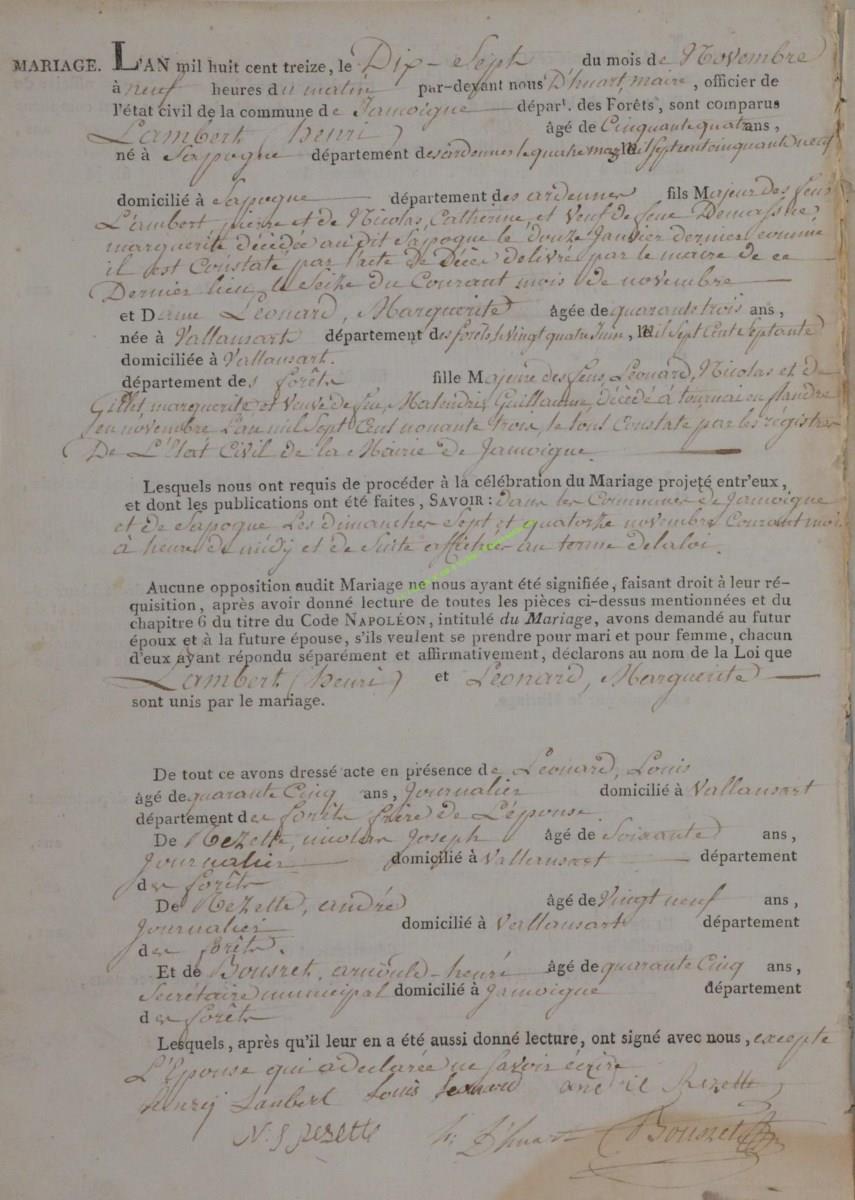 MARIAGE. L'AN mil huit cent treize, le Dix-Sept du mois de Novembre
à neuf heures du matin par-devant nous D'huart, maire, officier de
l'état civil de la commune de Jamoigne départ. des Forêts, sont comparus
Lambert (henri) âgé de Cinquante quatre ans,
né à Sapogne département des ardennes le quatre may Mil Sept cent cinquante neuf
domicilié à Sapogne département des ardennes fils Majeur des feus
Lambert, pierre et de Nicolas, Catherine, et Veuf de feue
marguerite décédée au dit Sapogne le douze Janvier dernier comme
il est Constaté par l'acte de Décès délivré par le maire de ce
Dernier lieu le Seize du Courant mois de novembre
et Dame Léonard, Marguerite âgée de quarante trois ans,
née à Vallansart département des forêts le vingt quatre Juin, Mil Sept Cent Septante
domiciliée à Vallansart.
département des forêts fille Majeure des feus Léonard, Nicolas et de
Gillet marguerite et veuve de feu Guillaume, décédé à tournai en flandre
en novembre L'an mil Sept Cens nonante trois, le tout Constate par les régistres
De L'Etat Civil de la Mairie de Jamoigne
Lesquels nous ont requis de procéder à la célébration du Mariage projeté entr'eux,
et dont les publications ont été faites, SAVOIR : dans les Communes de Jamoigne
et de Sapogne Les dimanches Sept et quatorze novembre Courant mois
à heure de midy et de Suite affichées au terme de la loi.
Aucune opposition audit Mariage ne nous ayant été signifiée, faisant droit à leur ré-
quisition, après avoir donné lecture de toutes les pièces ci-dessus mentionnées et du
chapitre 6 du titre du Code NAPOLÉON, intitulé du Mariage, avons demandé au futur
époux et à la future épouse, s'ils veulent se prendre pour mari et pour femme, chacun
d'eux ayant répondu séparément et affirmativement, déclarons au nom de la Loi que
Lambert (henri) et Léonard, Marguerite
sont unis par le mariage.
De tout ce avons dressé acte en présence de Léonard, Louis
âgé de quarante Cinq ans, Journalier domicilié à Vallansart
département des forêts frère de L'épouse.
De Rezette, nicolas Joseph âgé de Soixante ans,
Journalier domicilié à Vallansart département
des forêts
De Rezette, andré âgé de Vingt neuf ans,
Journalier domicilié à Vallansart département
des forêts.
Et de Bousret, arnould-henri âgé de quarante Cinq ans,
Secrétaire municipal domicilié à Jamoigne département
des forêts
Lesquels, après qu'il leur en a été aussi donné lecture, ont signé avec nous, excepté
L'Epouse qui a declarée ne Savoir écrire
henry Lanbert Louis Leonard andré Rezette
N. J rezette h: D'huart Bousret